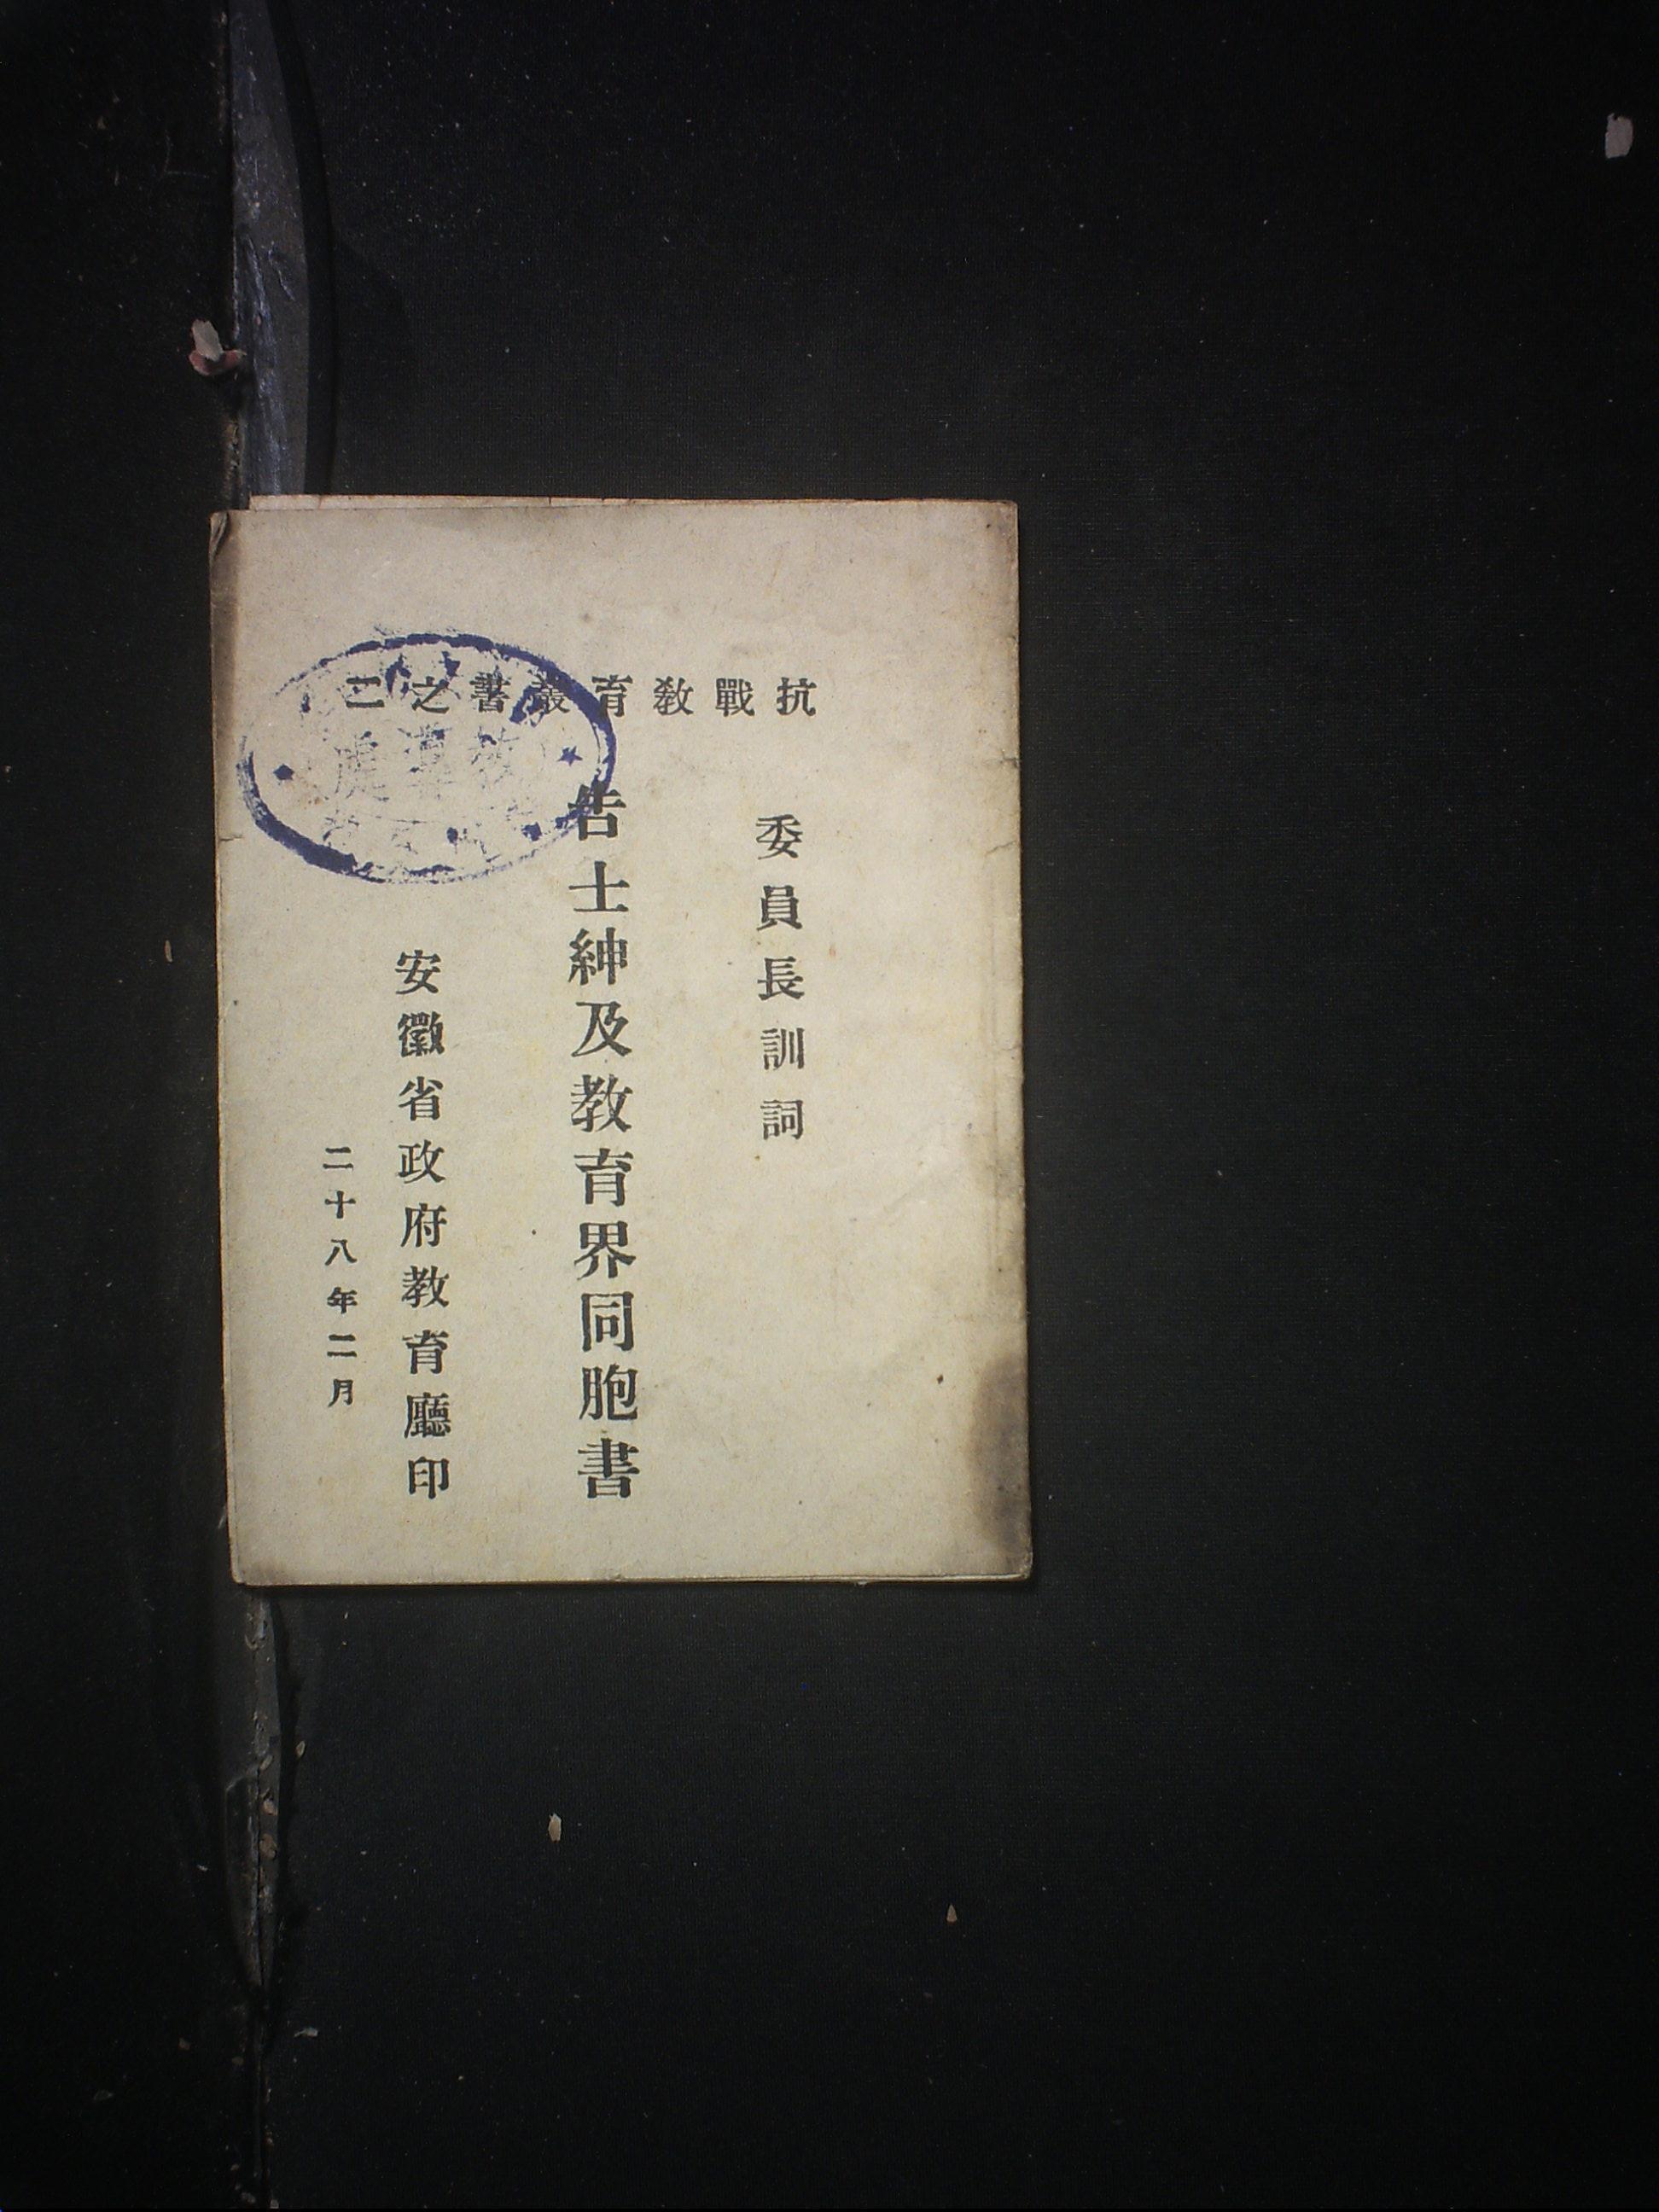 抗戰教育叢書之二
委員長訓詞
告士紳及教育界同胞書
安徽省政府教育廳印
二十八年二月